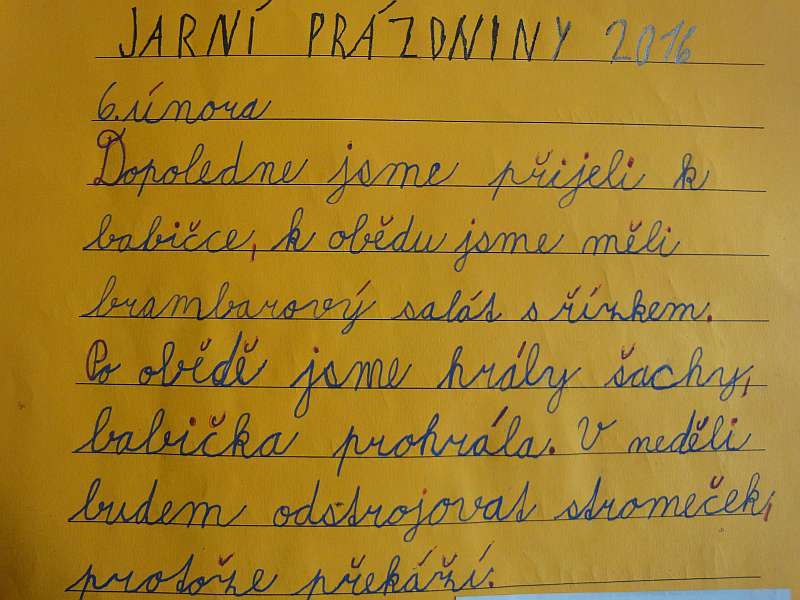 JARNÍ PRÁZDNINY 2016
6. února
Dopoledne jsme přijeli k
babičce, k obědu jsme měli
brambarový salát s řízkem.
Po obědě jsme hrály šachy,
babička prohrála. V neděli
budem odstrojovat stromeček,
protože překáží.